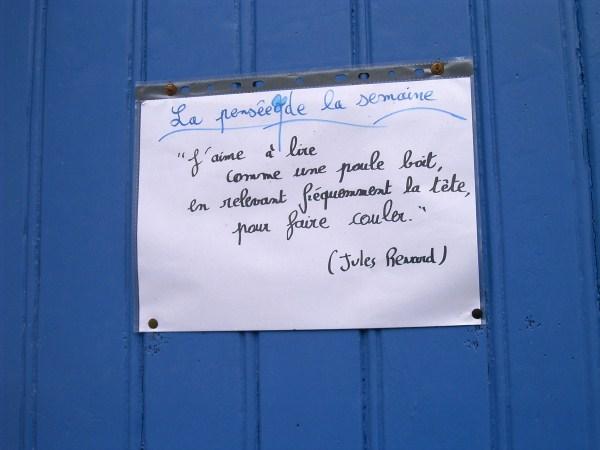 La pensée de la semaine
"J'aime à lire
comme une poule boit,
en relevant fréquemment la tête,
pour faire couler."
(Jules Renard)